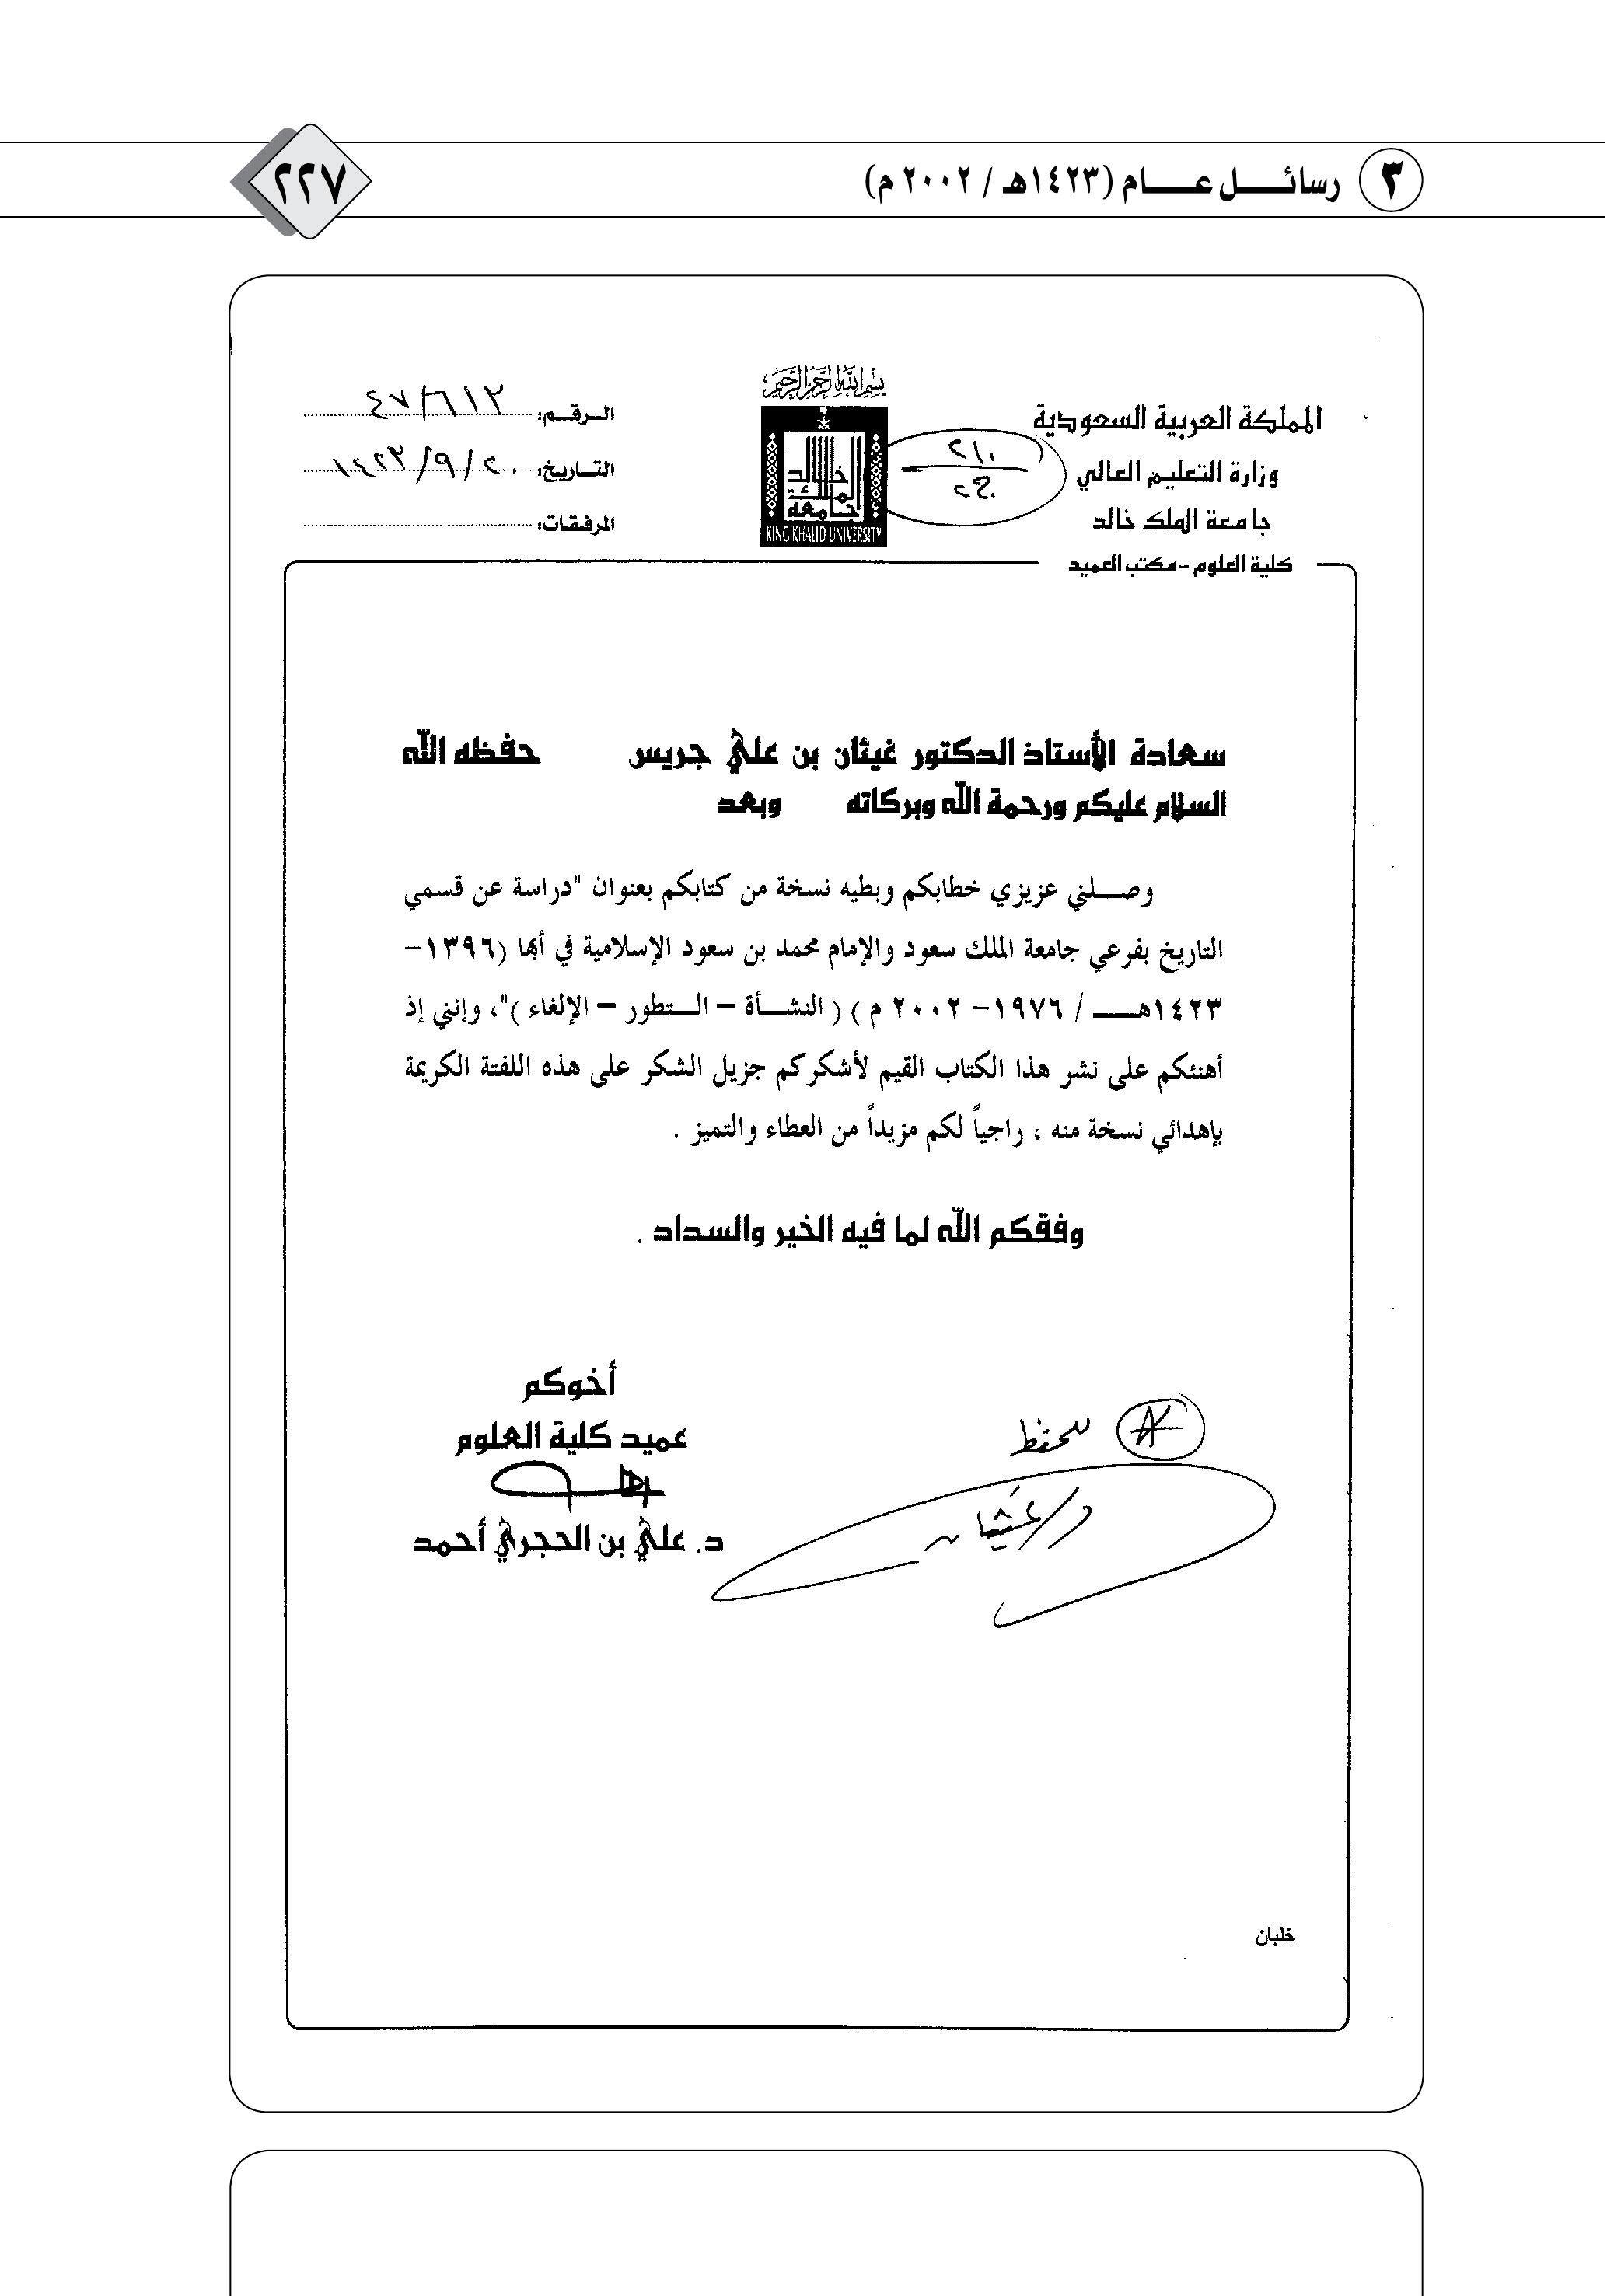 ٣ رسائـــل عـــــام (١٤٢٣هـ / ٢٠٠٢ م)
٢٢٧
بسم الله الرحمن الرحيم
المملكة العربية السعودية
وزارة التعليم العالي
جامعة الملك خالد
كلية العلوم - مكتب العميد
جامعة الملك خالد
KING KHALID UNIVERSITY
الـرقـم: ٤٧/٦١٢
التـاريخ: ١٤٢٣/٩/٢٠
المرفـقـات:
سعادة الأستاذ الدكتور غيثان بن علي جريس حفظه الله
السلام عليكم ورحمة الله وبركاته وبعد
وصـــلني عزيزي خطابكم وبطيه نسخة من كتابكم بعنوان "دراسة عن قسمي
التاريخ بفرعي جامعة الملك سعود والإمام محمد بن سعود الإسلامية في أبها (١٣٩٦-
١٤٢٣هــــ / ١٩٧٦- ٢٠٠٢ م ) ( النشـــأة – الـــتطور – الإلغاء )"، وإنني إذ
أهنئكم على نشر هذا الكتاب القيم لأشكركم جزيل الشكر على هذه اللفتة الكريمة
بإهدائي نسخة منه ، راجياً لكم مزيداً من العطاء والتميز .
وفقكم الله لما فيه الخير والسداد .
أخوكم
عميد كلية العلوم
د. علي بن الحجري أحمد
للحفظ
د/غيثان
خلبان